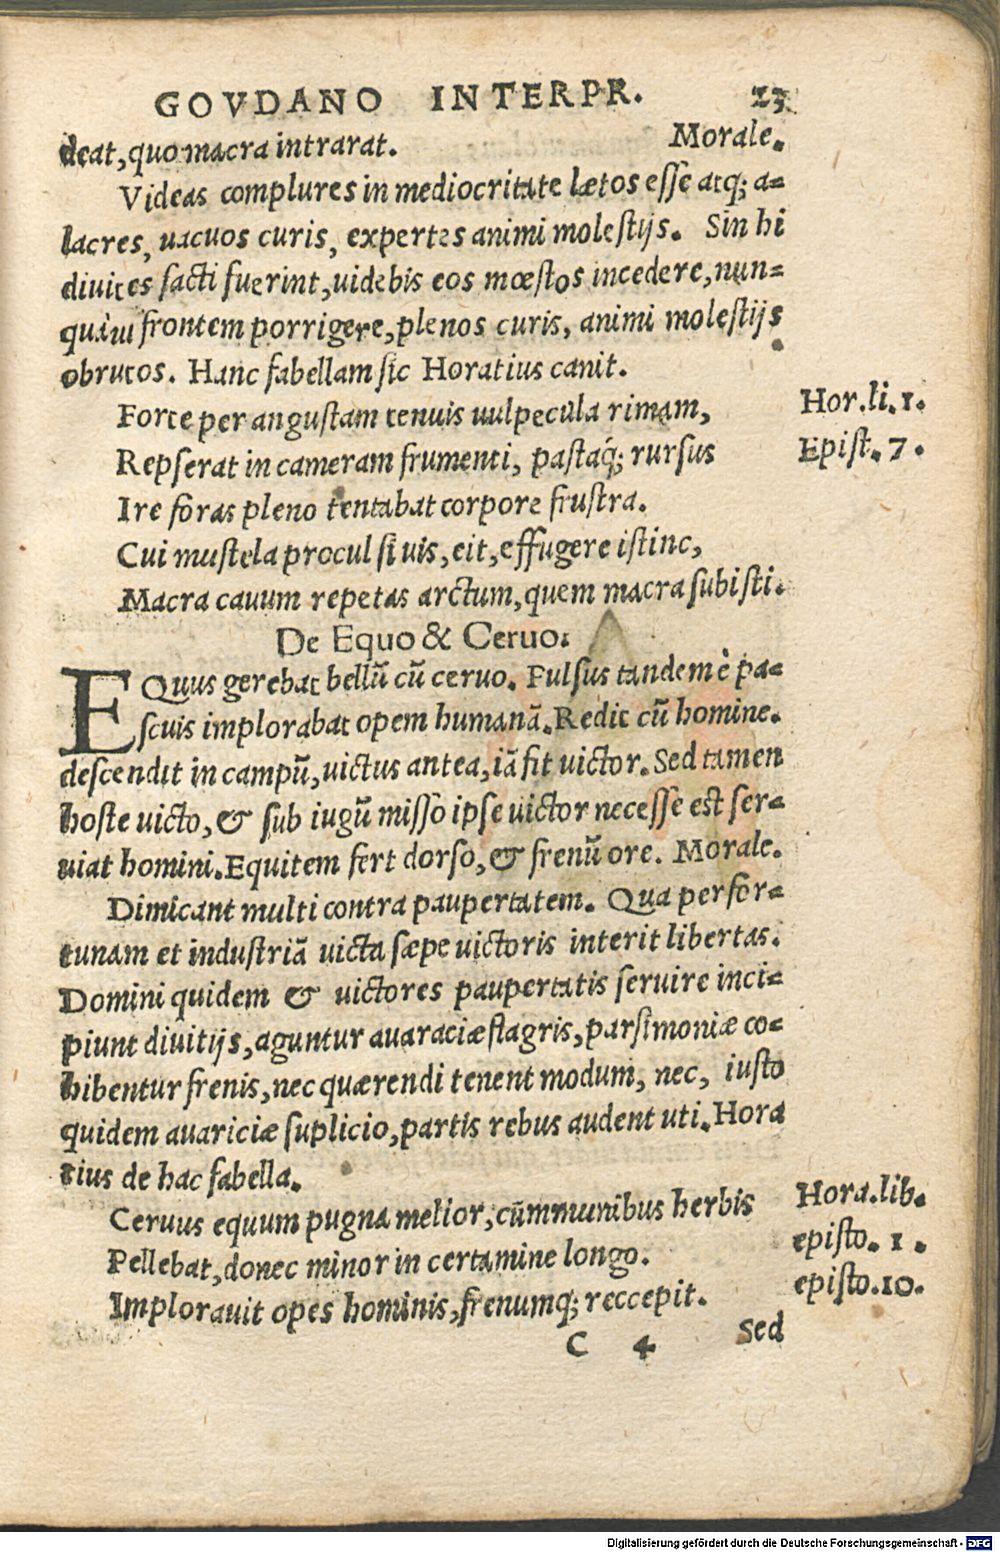 GOVDANO INTERPR. 23
deat, quo macra intrarat. Morale.
Videas complures in mediocritate lætos esse atq; a-
lacres, uacuos curis, expertes animi molestijs. Sin hi
diuites facti fuerint, uidebis eos mœstos incedere, nun-
quàm frontem porrigere, plenos curis, animi molestijs
obrutos. Hanc fabellam sic Horatius canit.
Forte per angustam tenuis uulpecula rimam, Hor.li.1.
Repserat in cameram frumenti, pastaq́; rursus Epist.7.
Ire foras pleno tentabat corpore frustra.
Cui mustela procul si uis, eit, effugere istinc,
Macra cauum repetas arctum, quem macra subisti.
De Equo & Ceruo.
EQuus gerebat bellũ cũ ceruo. Pulsus tandem è pa-
scuis implorabat opem humanã. Redit cũ homine.
descendit in campũ, uictus antea, iã fit uictor. Sed tamen
hoste uicto, & sub iugũ misso ipse uictor necesse est ser-
uiat homini. Equitem fert dorso, & frenũ ore. Morale.
Dimicant multi contra paupertatem. Qua per for-
tunam et industriã uicta sæpe uictoris interit libertas.
Domini quidem & uictores paupertatis seruire inci-
piunt diuitijs, aguntur auaraciæ flagris, parsimoniæ co-
hibentur frenis, nec quærendi tenent modum, nec, iusto
quidem auariciæ suplicio, partis rebus audent uti. Hora
tius de hac fabella.
Ceruus equum pugna melior, cũmmunibus herbis Hora.lib.
Pellebat, donec minor in certamine longo. episto. 1.
Implorauit opes hominis, frenumq; reccepit. episto.10.
C 4 Sed
Digitalisierung gefördert durch die Deutsche Forschungsgemeinschaft - DFG